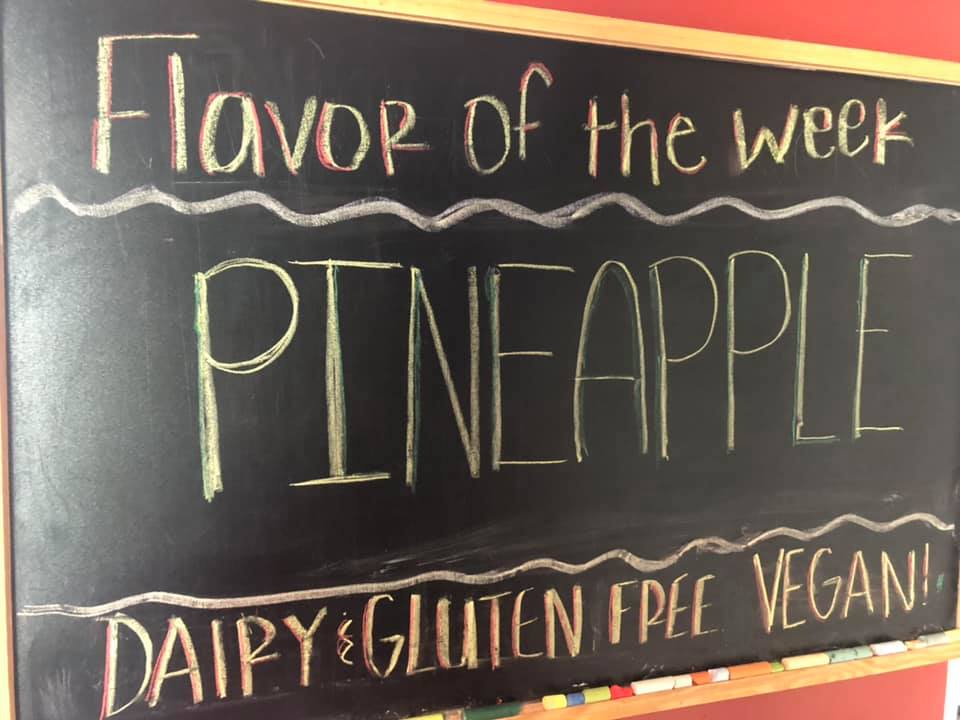 Flavor of the week
PINEAPPLE
DAIRY & GLUTEN FREE VEGAN!